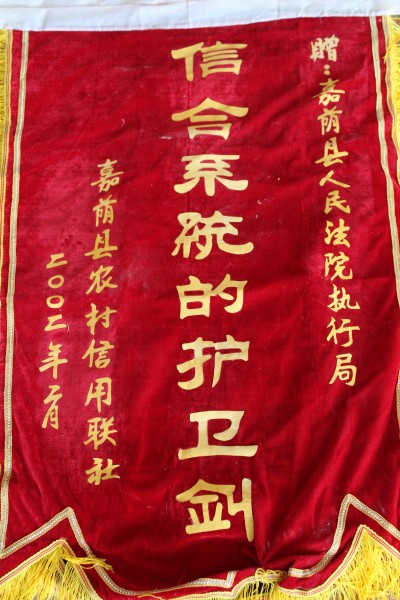 赠：嘉荫县人民法院执行局
信合系统的护卫剑
嘉荫县农村信用联社
二〇〇二年月